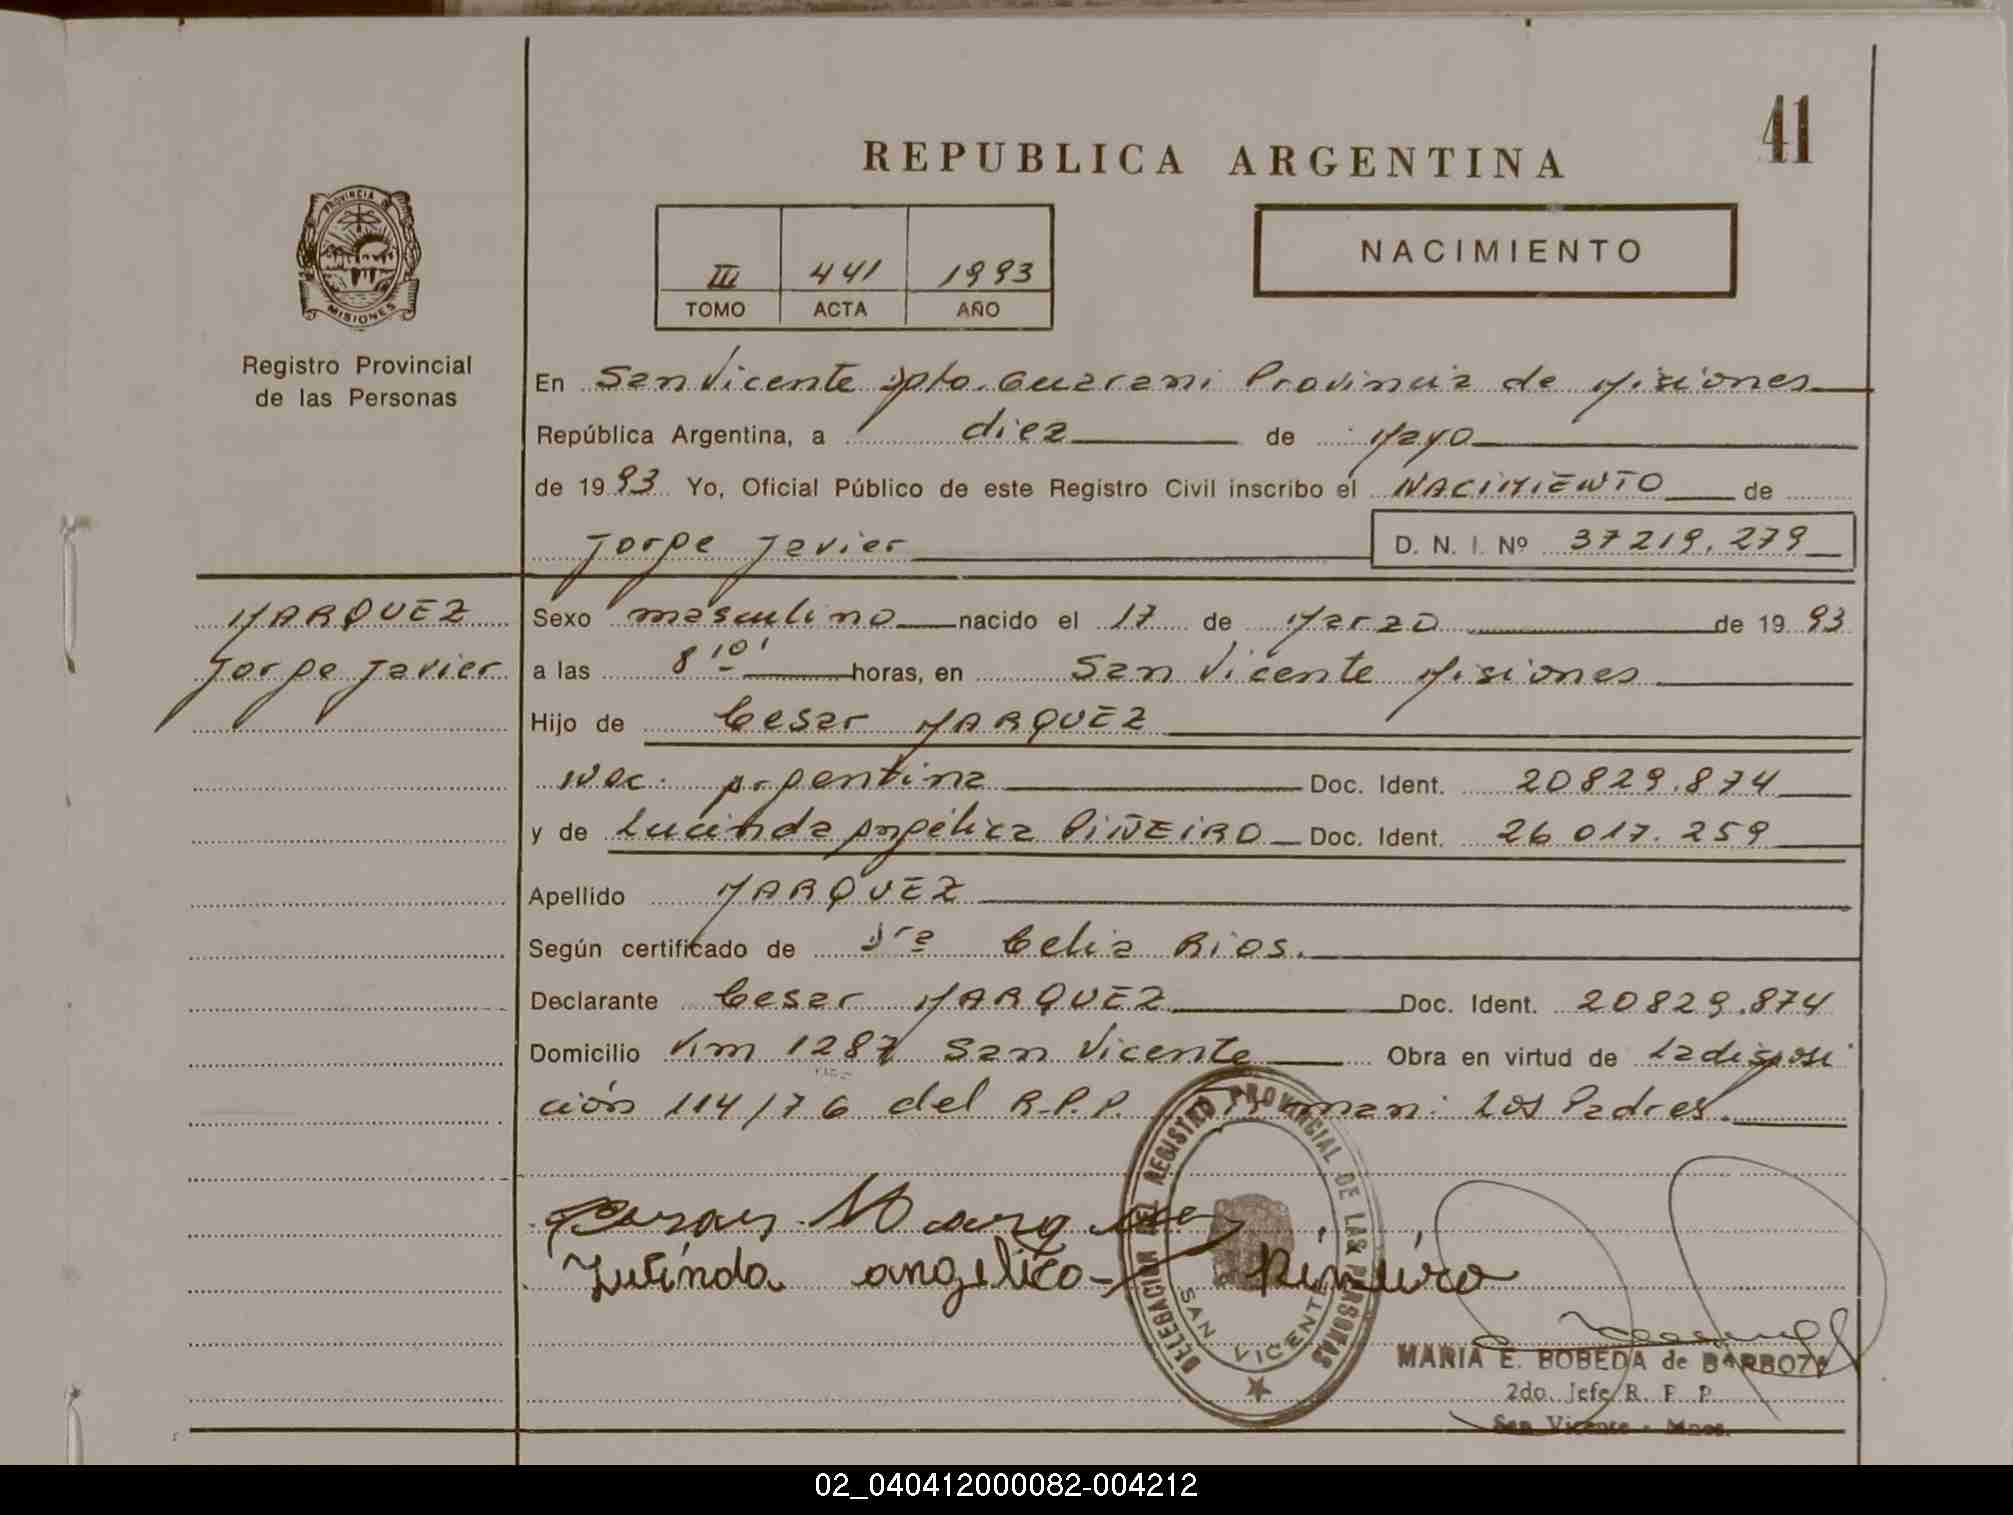 41
REPUBLICA ARGENTINA
PROVINCIA DE
MISIONES
Registro Provincial
de las Personas
III 441 1993
TOMO ACTA AÑO
NACIMIENTO
En San Vicente Dpto. Guarani Provincia de Misiones
República Argentina, a diez de Mayo
de 1993 Yo, Oficial Público de este Registro Civil inscribo el NACIMIENTO de
Jorge Javier D. N. I. Nº 37219.279
MARQUEZ
Jorge Javier
Sexo masculino nacido el 17 de Marzo de 1993
a las 8 10' horas, en San Vicente Misiones
Hijo de Cesar MARQUEZ
Nac. Argentina Doc. Ident. 20829.874
y de Lucinda Angélica PIÑEIRO Doc. Ident. 26017.259
Apellido MARQUEZ
Según certificado de Dra Celia Rios.
Declarante Cesar MARQUEZ Doc. Ident. 20829.874
Domicilio Km 1287 San Vicente Obra en virtud de La disposi
ción 114/76 del R.P.P. Firman: Los Padres.
Marquez
Lucinda angelica Piñeiro
DELEGACION DEL REGISTRO PROVINCIAL DE LAS PERSONAS
SAN VICENTE
MARIA E. BOBEDA de BARBOZA
2do. Jefe R. P. P.
San Vicente - Mnes.
02_040412000082-004212